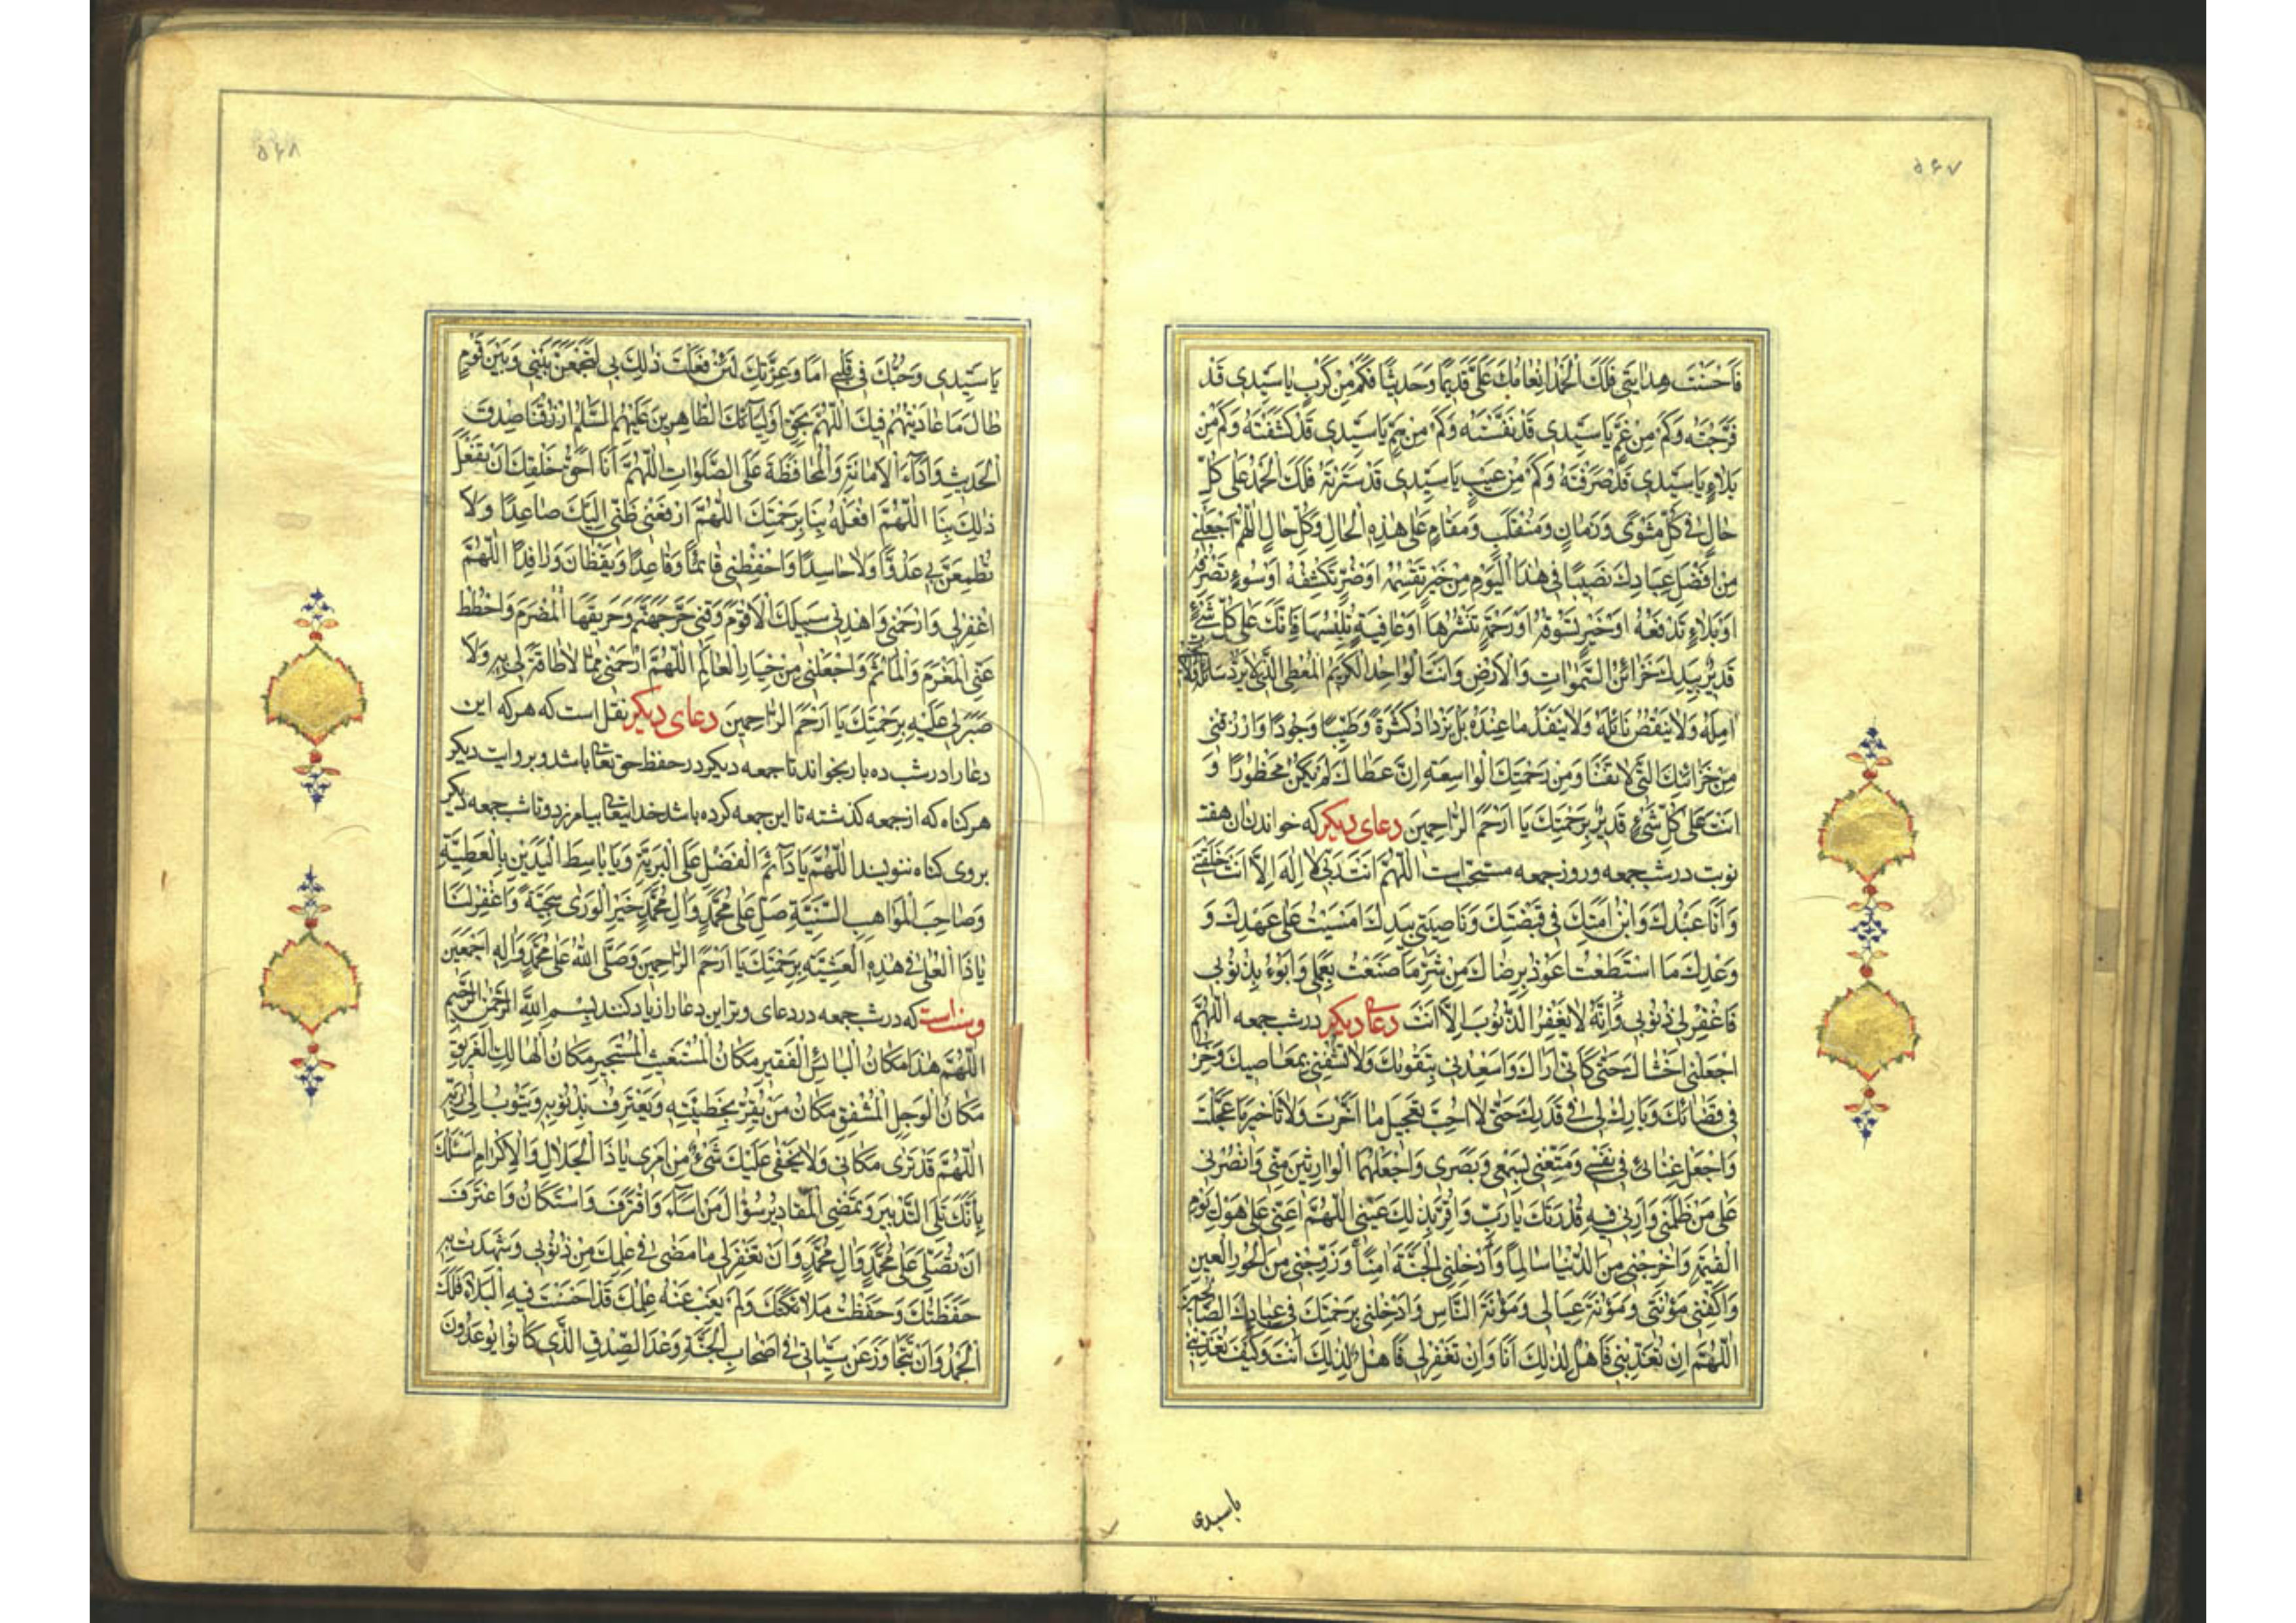 ۵۶۷
فَاَحْسَنْتَ هِدايَتي فَلَكَ الْحَمْدُ اِنْعامُكَ عَلَيَّ قَديمًا وَحَديثًا فَكَمْ مِنْ كَرْبٍ يا سَيِّدي قَدْ
فَرَّجْتَهُ وَكَمْ مِنْ غَمٍّ يا سَيِّدي قَدْ نَفَّسْتَهُ وَكَمْ مِنْ هَمٍّ يا سَيِّدي قَدْ كَشَفْتَهُ وَكَمْ مِنْ
بَلاءٍ يا سَيِّدي قَدْ صَرَفْتَهُ وَكَمْ مِنْ عَيْبٍ يا سَيِّدي قَدْ سَتَرْتَهُ فَلَكَ الْحَمْدُ عَلى كُلِّ
حالٍ في كُلِّ مَثْوًى وَزَمانٍ وَمُنْقَلَبٍ وَمَقامٍ عَلى هٰذِهِ الْحالِ وَكُلِّ حالٍ اَللّٰهُمَّ اجْعَلْني
مِنْ اَفْضَلِ عِبادِكَ نَصيبًا في هٰذَا الْيَوْمِ مِنْ خَيْرٍ تَقْسِمُهُ اَوْ ضُرٍّ تَكْشِفُهُ اَوْ سُوءٍ تَصْرِفُهُ
اَوْ بَلاءٍ تَدْفَعُهُ اَوْ خَيْرٍ تَسُوقُهُ اَوْ رَحْمَةٍ تَنْشُرُها اَوْ عافِيَةٍ تُلْبِسُها فَاِنَّكَ عَلى كُلِّ شَيْءٍ
قَديرٌ بِيَدِكَ خَزائِنُ السَّمٰواتِ وَالْاَرْضِ وَاَنْتَ الْواحِدُ الْكَريمُ الْمُعْطِي الَّذي لا يُرَدُّ سائِلُهُ وَلا
آمِلُهُ وَلا يَنْقُصُ نائِلُهُ وَلا يَنْفَدُ ما عِنْدَهُ بَلْ يَزْدادُ كَثْرَةً وَطيبًا وَجُودًا وَارْزُقْني
مِنْ خَزائِنِكَ الَّتي لا تَفْنا وَمِنْ رَحْمَتِكَ الْواسِعَةِ اِنَّ عَطاءَكَ لَمْ يَكُنْ مَحْظُورًا وَ
اَنْتَ عَلى كُلِّ شَيْءٍ قَديرٌ بِرَحْمَتِكَ يا اَرْحَمَ الرّاحِمينَ دعای دیکر که خواندن ان هفت
نوبت در شب جمعه و روز جمعه مستحب است اَللّٰهُمَّ اَنْتَ رَبّي لا اِلٰهَ اِلاّ اَنْتَ خَلَقْتَني
وَاَنَا عَبْدُكَ وَابْنُ اَمَتِكَ في قَبْضَتِكَ وَناصِيَتي بِيَدِكَ اَمْسَيْتُ عَلى عَهْدِكَ وَ
وَعْدِكَ مَا اسْتَطَعْتُ اَعُوذُ بِرِضاكَ مِنْ شَرِّ ما صَنَعْتُ بِعَمَلي وَاَبُوءُ بِذُنُوبي
فَاغْفِرْلي ذُنُوبي وَاِنَّهُ لا يَغْفِرُ الذُّنُوبَ اِلاّ اَنْتَ دعای دیکر در شب جمعه اَللّٰهُمَّ
اجْعَلْني اَخْشاكَ حَتّى كَاَنّي اَراكَ وَاَسْعِدْني بِتَقْويكَ وَلا تُشْقِني بِمَعاصيكَ وَخِرْلي
في قَضائِكَ وَبارِكْ لي في قَدَرِكَ حَتّى لا اُحِبَّ تَعْجيلَ ما اَخَّرْتَ وَلا تَاْخيرَ ما عَجَّلْتَ
وَاجْعَلْ غِنائي في نَفْسي وَمَتِّعْني بِسَمْعي وَبَصَري وَاجْعَلْهُمَا الْوارِثَيْنِ مِنّي وَانْصُرْني
عَلى مَنْ ظَلَمَني وَاَرِني فيهِ قُدْرَتَكَ يا رَبِّ وَاَقِرَّ بِذٰلِكَ عَيْني اَللّٰهُمَّ اَعِنّي عَلى هَوْلِ يَوْمِ
الْقِيٰمَةِ وَاَخْرِجْني مِنَ الدُّنْيا سالِمًا وَاَدْخِلْنِي الْجَنَّةَ آمِنًا وَزَوِّجْني مِنَ الْحُورِ الْعينِ
وَاكْفِني مَؤُنَتي وَمَؤُنَةَ عِيالي وَمَؤُنَةَ النّاسِ وَاَدْخِلْني بِرَحْمَتِكَ في عِبادِكَ الصّالِحينَ
اَللّٰهُمَّ اِنْ تُعَذِّبْني فَاَهْلٌ لِذٰلِكَ اَنَا وَاِنْ تَغْفِرْلي فَاَهْلٌ لِذٰلِكَ اَنْتَ وَكَيْفَ تُعَذِّبُني
یاسیدی
۵۶۸
يا سَيِّدي وَحُبُّكَ في قَلْبي اَما وَعِزَّتِكَ لَئِنْ فَعَلْتَ ذٰلِكَ بي لَتَجْمَعَنَّ بَيْني وَبَيْنَ قَوْمٍ
طالَ ما عادَيْتُهُمْ فيكَ اَللّٰهُمَّ بِحَقِّ اَوْلِيائِكَ الطّاهِرينَ عَلَيْهِمُ السَّلٰمُ ارْزُقْنا صِدْقَ
الْحَديثِ وَاَداءَ الْاَمانَةِ وَالْمُحافَظَةَ عَلَى الصَّلَواتِ اَللّٰهُمَّ اَنَا اَحَقُّ خَلْقِكَ اَنْ تَفْعَلَ
ذٰلِكَ بِنا اَللّٰهُمَّ افْعَلْهُ بِنا بِرَحْمَتِكَ اَللّٰهُمَّ ارْفَعْ ظَنّي اِلَيْكَ صاعِدًا وَلا
تُطْمِعَنَّ بي عَدُوًّا وَلا حاسِدًا وَاحْفَظْني قائِمًا وَقاعِدًا وَيَقْظانَ وَراقِدًا اَللّٰهُمَّ
اغْفِرْلي وَارْحَمْني وَاهْدِني سَبيلَكَ الْاَقْوَمَ وَقِني حَرَّ جَهَنَّمَ وَحَريقَهَا الْمُضْرَمَ وَاحْطُطْ
عَنِّي الْمَغْرَمَ وَالْمَاْثَمَ وَاجْعَلْني مِنْ خِيارِ الْعالَمِ اَللّٰهُمَّ ارْحَمْني مِمّا لا طاقَةَ لي بِهِ وَلا
صَبْرَ لي عَلَيْهِ بِرَحْمَتِكَ يا اَرْحَمَ الرّاحِمينَ دعای دیکر نقل است که هر که این
دعا را در شب ده بار بخواند تا جمعه دیکر در حفظ حق تعالی باشد و بروایت دیکر
هر کناه که از جمعه کذشته تا این جمعه کرده باشد خدایتعالی بیامرزد و تا شب جمعه دیکر
بروی کناه ننویسند اَللّٰهُمَّ يا دائِمَ الْفَضْلِ عَلَى الْبَرِيَّةِ وَيا باسِطَ الْيَدَيْنِ بِالْعَطِيَّةِ
وَصاحِبَ الْمَواهِبِ السَّنِيَّةِ صَلِّ عَلى مُحَمَّدٍ وَآلِ مُحَمَّدٍ خَيْرِ الْوَرى سَجِيَّةً وَاغْفِرْ لَنا
يا ذَا الْعُلى في هٰذِهِ الْعَشِيَّةِ بِرَحْمَتِكَ يا اَرْحَمَ الرّاحِمينَ وَصَلَّى اللهُ عَلى مُحَمَّدٍ وَآلِهِ اَجْمَعينَ
وسنت است که در شب جمعه در دعای وتر این دعا را زیاد کند بِسْمِ اللهِ الرَّحْمٰنِ الرَّحيمِ
اَللّٰهُمَّ هٰذا مَكانُ الْبائِسِ الْفَقيرِ مَكانُ الْمُسْتَغيثِ الْمُسْتَجيرِ مَكانُ الْهالِكِ الْغَريقِ
مَكانُ الْوَجِلِ الْمُشْفِقِ مَكانُ مَنْ يُقِرُّ بِخَطيئَتِهِ وَيَعْتَرِفُ بِذُنُوبِهِ وَيَتُوبُ اِلى رَبِّهِ
اَللّٰهُمَّ قَدْ تَرى مَكاني وَلا يَخْفى عَلَيْكَ شَيْءٌ مِنْ اَمْري يا ذَا الْجَلالِ وَالْاِكْرامِ اَسْئَلُكَ
بِاَنَّكَ تَلِي التَّدْبيرَ وَتُمْضِي الْمَقاديرَ سُؤالَ مَنْ اَساءَ وَاقْتَرَفَ وَاسْتَكانَ وَاعْتَرَفَ
اَنْ تُصَلِّيَ عَلى مُحَمَّدٍ وَآلِ مُحَمَّدٍ وَاَنْ تَغْفِرَلي ما مَضى في عِلْمِكَ مِنْ ذُنُوبي وَشَهِدَتْ بِهِ
حَفَظَتُكَ وَحَفِظَتْ مَلائِكَتُكَ وَلَمْ يَغِبْ عَنْهُ عِلْمُكَ قَدْ اَحْسَنْتَ فيهِ الْبَلاءَ فَلَكَ
الْحَمْدُ وَاَنْ تَتَجاوَزَ عَنْ سَيِّئاتي في اَصْحابِ الْجَنَّةِ وَعْدَ الصِّدْقِ الَّذي كانُوا يُوعَدُونَ